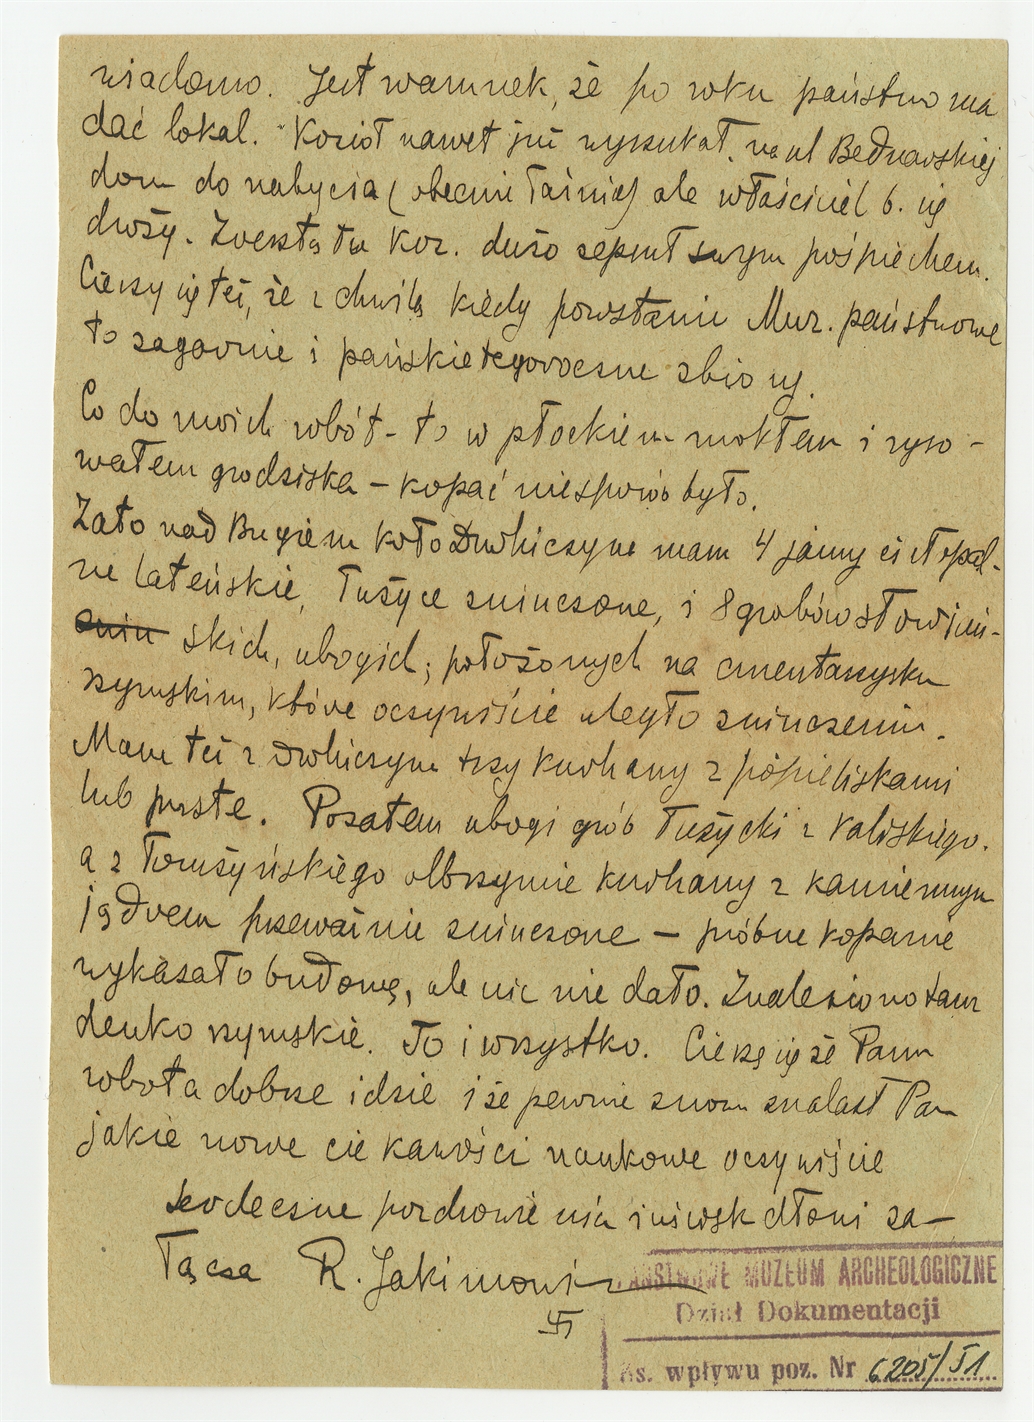 wiadomo. Jest warunek, że po roku państwo ma
dać lokal. Kozioł nawet już wyszukał na ul Bednarskiej
dom do nabycia (obecnie łaźnie) ale właściciel b. się
droży. Zresztą tu Koz. dużo zepsuł swym pośpiechem.
Cieszy się też, że z chwilą kiedy powstanie Muz. państwowe
to zagarnie i pańskie tegoroczne zbiory.
Co do moich robót - to w płockiem mokłem i ryso-
wałem grodziska - kopać niesposób było.
Zato nad Bugiem koło Drohiczyna mam 4 jamy ciałopal-
ne lateńskie, łużyce zniszczone, i 8 grobów słowiań-
skich, ubogich, położonych na cmentarzysku
rzymskim, które oczywiście uległo zniszczeniu.
Mam też z Drohiczyna trzy kurhany z popieliskami
lub puste. Pozatem ubogi grób łużycki z Kaliskiego.
a z Łomżyńskiego olbrzymie kurhany z kamiennym
jądrem przeważnie zniszczone - próbne kopanie
wykazało budowę, ale nic nie dało. Znaleziono tam
denko rzymskie. To i wszystko. Cieszę się że Panu
robota dobrze idzie i że pewnie znowu znalazł Pan
jakie nowe ciekawości naukowe oczywiście
serdeczne pozdrowienia i uścisk dłoni za-
łącza R. Jakimowicz
卐
PAŃSTWOWE MUZEUM ARCHEOLOGICZNE
Dział Dokumentacji
Ks. wpływu poz. Nr 6205/51